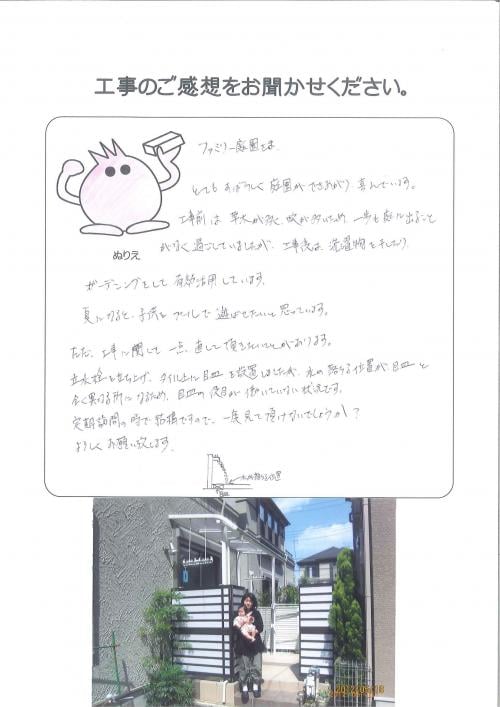 工事のご感想をお聞かせください。
ぬりえ
ファミリー庭園さま
とてもすばらしく庭園ができあがり、喜んでいます。
工事前は草木が多く、蚊が多いため、一歩も庭に出ること
がなく過ごしていましたが、工事後は、洗濯物をほしたり
ガーデニングをして有効活用しています。
夏になると、子供を プールで遊ばせたいと思っています。
ただ、工事に関して一点、直して頂きたいことがあります。
立水栓を立ち上げ、タイル上に目皿を設置しましたが、水の落ちる位置が、目皿と
全く異なる所になるため、目皿の役目が働いていない状況です。
定期訪問の時で結構ですので、一度見て頂けないでしょうか?
よろしくお願い致します。
水の落ちる位置
目皿
2012/05/18